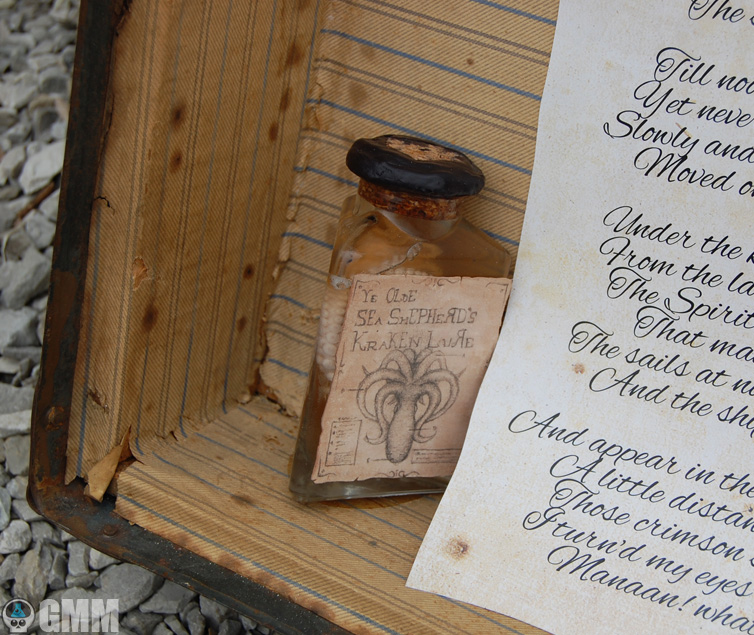 Ye Olde
Sea Shepherd's
Kraken Lure
The
Till no
Yet neve
Slowly and
Moved o
Under the
From the la
The Spirit
That ma
The sails at n
And the shi
And appear in the
A little distan
Those crimson s
I turn'd my eyes
Manaan! wha
GMM